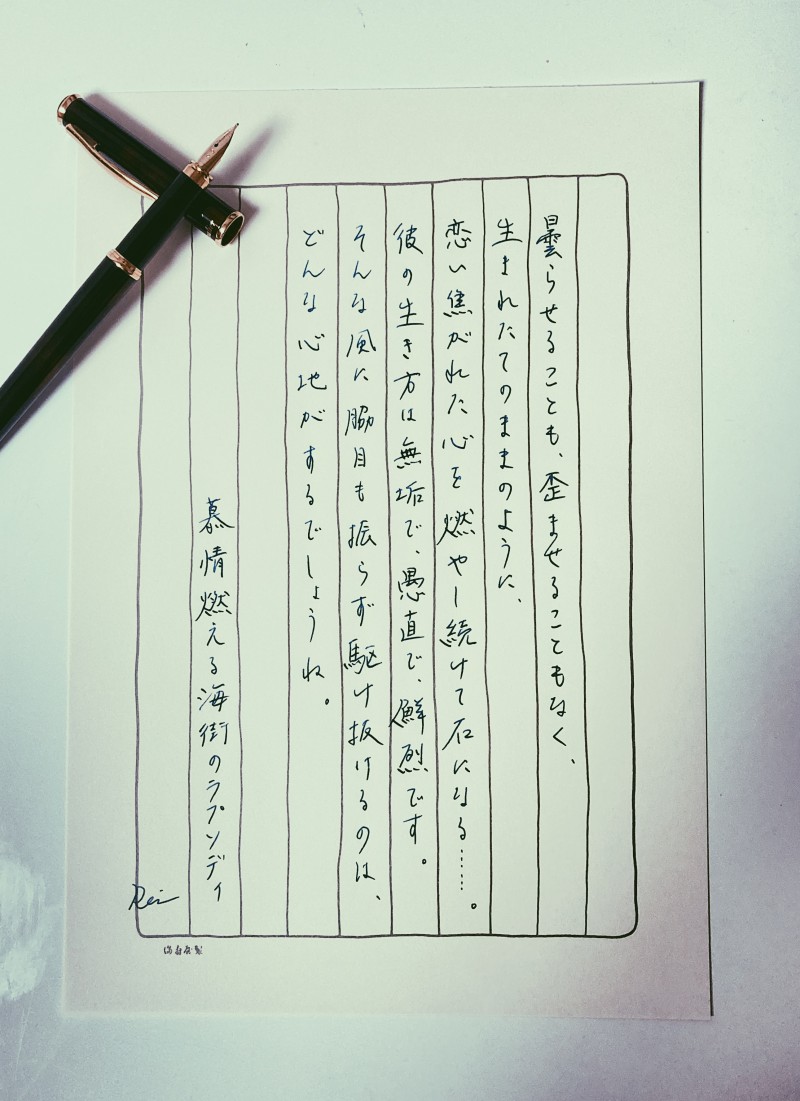 曇らせることも、歪ませることもなく、
生まれたてのままのように、
恋い焦がれた心を燃やし続けて石になる……。
彼の生き方は無垢で、愚直で、鮮烈です。
そんな風に脇目も振らず駆け抜けるのは、
どんな心地がするでしょうね。
慕情燃える海街のラプソディ
Rei